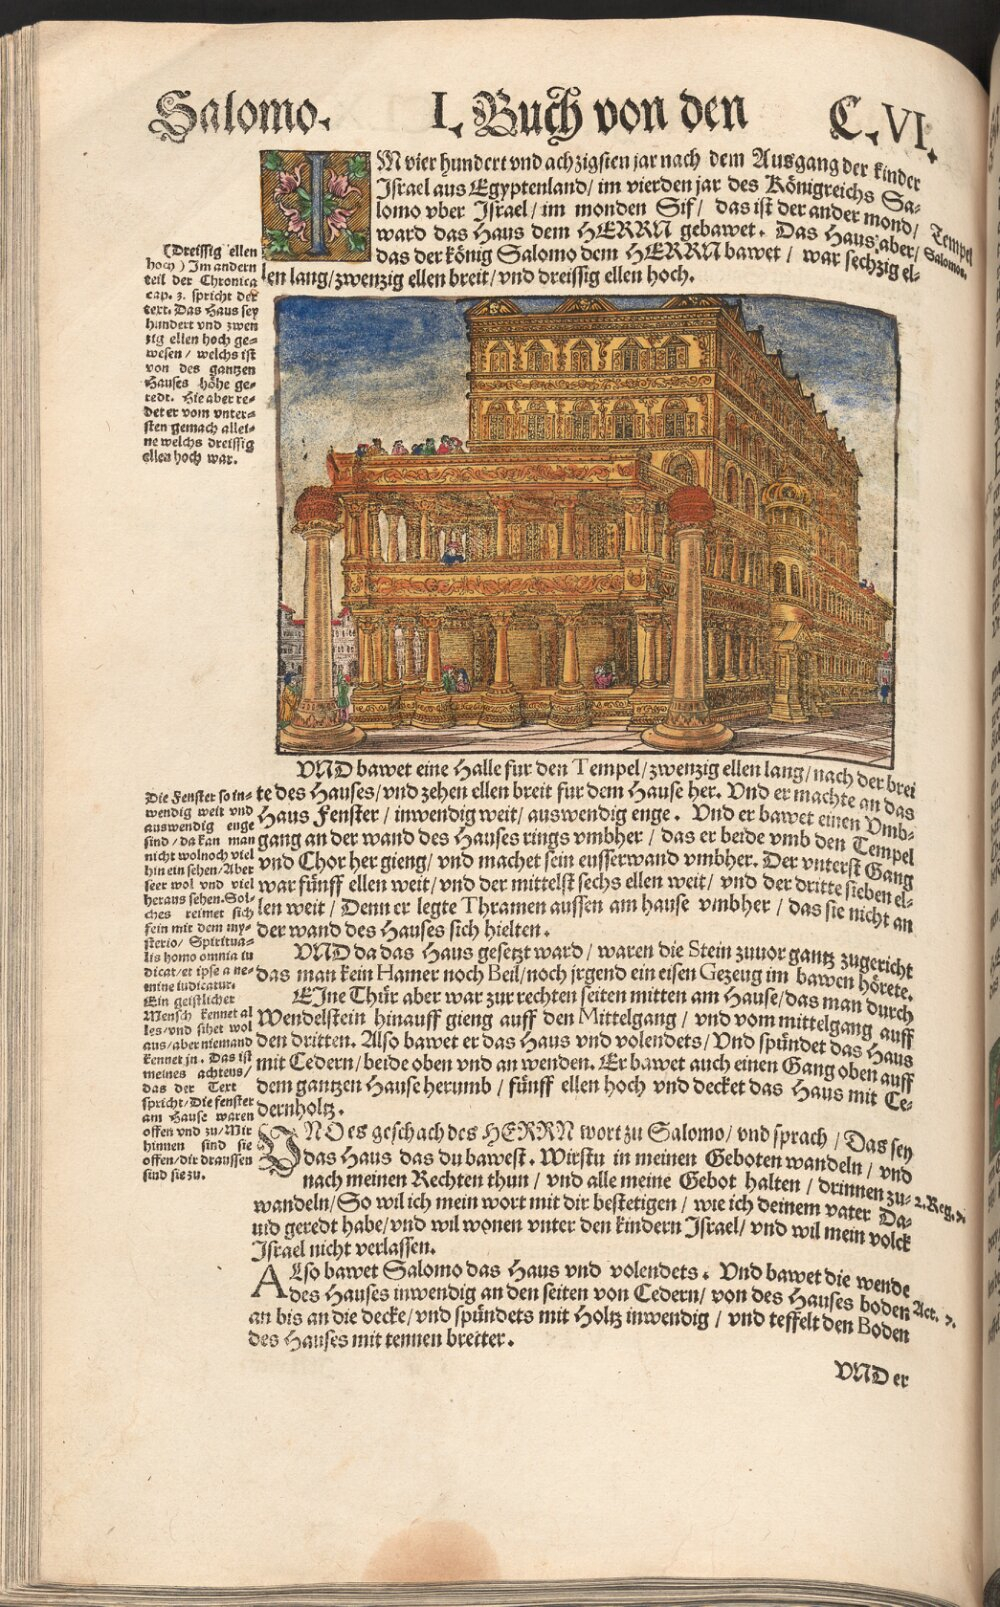 Salomo. I. Buch von den C. VI.
IM vier hundert vnd achzigsten jar nach dem Ausgang der kinder
Jsrael aus Egyptenland/ im vierden jar des Königreichs Sa-
lomo vber Jsrael/ im monden Sif/ das ist der ander mond/
ward das Haus dem HERRN gebawet. Das Haus aber/
das der könig Salomo dem HERRN bawet/ war sechzig el-
len lang/ zwenzig ellen breit/ vnd dreissig ellen hoch.
Tempel
Salomo.
(Dreissig ellen
hoch) Im andern
teil der Chronica
cap. 3. spricht der
text. Das Haus sey
hundert vnd zwen
zig ellen hoch ge-
wesen/ welchs ist
von des gantzen
Hauses höhe ge-
redt. Hie aber re-
det er vom vnter-
sten gemach allei-
ne welchs dreissig
ellen hoch war.
VND bawet eine Halle fur den Tempel/ zwenzig ellen lang/ nach der brei
te des Hauses/ vnd zehen ellen breit fur dem Hause her. Vnd er machte an das
Haus Fenster/ inwendig weit/ auswendig enge. Vnd er bawet einen Vmb-
gang an der wand des Hauses rings vmbher/ das er beide vmb den Tempel
vnd Chor her gieng/ vnd machet sein eusserwand vmbher. Der vnterst Gang
war fünff ellen weit/ vnd der mittelst sechs ellen weit/ vnd der dritte sieben el-
len weit/ Denn er legte Thramen aussen am hause vmbher/ das sie nicht an
der wand des Hauses sich hielten.
VND da das Haus gesetzt ward/ waren die Stein zuuor gantz zugericht
das man kein Hamer noch Beil/ noch jrgend ein eisen Gezeug im bawen hörete.
EJne Thür aber war zur rechten seiten mitten am Hause/ das man durch
Wendelstein hinauff gieng auff den Mittelgang/ vnd vom mittelgang auff
den dritten. Also bawet er das Haus vnd volendets/ Vnd spündet das Haus
mit Cedern/ beide oben vnd an wenden. Er bawet auch einen Gang oben auff
dem gantzen Hause herumb/ fünff ellen hoch vnd decket das Haus mit Ce-
dernholtz.
Die Fenster so in-
wendig weit vnd
auswendig enge
sind/ da kan man
nicht wol noch viel
hin ein sehen/ Aber
seer wol vnd viel
heraus sehen. Sol-
ches reimet sich
fein mit dem my-
sterio/ Spiritua-
lis homo omnia iu
dicat/ et ipse a ne-
mine iudicatur.
Ein geistlicher
Mensch kennet al
les/ vnd sihet wol
aus/ aber niemand
kennet jn. Das ist
meines achtens/
das der Text
spricht/ Die fenster
am Hause waren
offen vnd zu/ Mir
hinnen sind sie
offen/ dir draussen
sind sie zu.
VND es geschach des HERRN wort zu Salomo/ vnd sprach/ Das sey
das Haus das du bawest. Wirstu in meinen Geboten wandeln/ vnd
nach meinen Rechten thun/ vnd alle meine Gebot halten/ drinnen zu-
wandeln/ So wil ich mein wort mit dir bestetigen/ wie ich deinem vater Da-
uid geredt habe/ vnd wil wonen vnter den kindern Jsrael/ vnd wil mein volck
Jsrael nicht verlassen.
2. Reg. 7.
ALso bawet Salomo das Haus vnd volendets. Vnd bawet die wende
des Hauses inwendig an den seiten von Cedern/ von des Hauses boden
an bis an die decke/ vnd spündets mit Holtz inwendig/ vnd teffelt den Boden
des Hauses mit tennen bretter.
Act. 7.
VND er